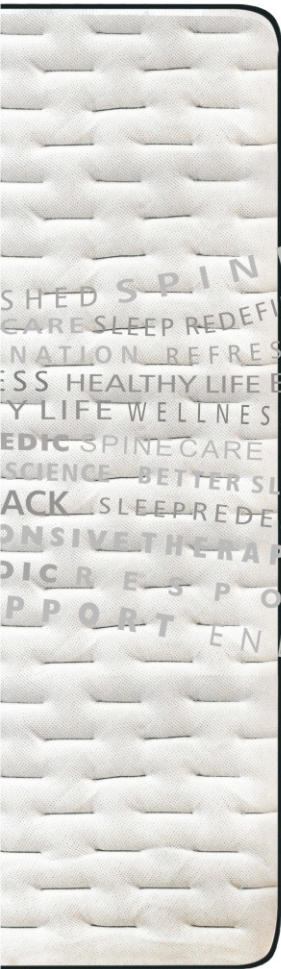 SHED SPIN
CARE SLEEP REDEFI
NATION REFRES
ESS HEALTHY LIFE
Y LIFE WELLNES
EDIC SPINE CARE
SCIENCE BETTER SL
ACK SLEEPREDE
ONSIVE THERAP
DIC RESPO
PPORT EN